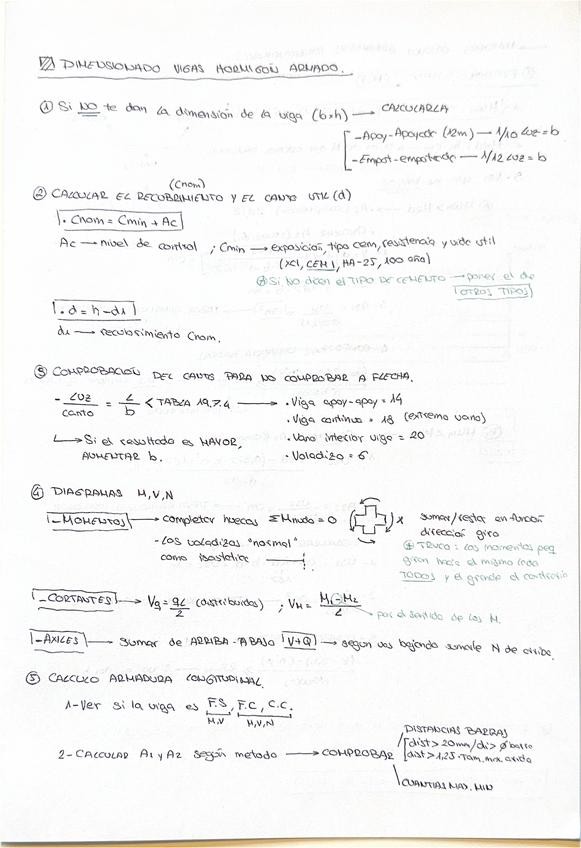 DIMENSIONADO VIGAS HORMIGÓN ARMADO.
① Si NO te dan la dimensión de la viga (b×h) → CALCULARLA
- Apoy-Apoyada (12m) — 1/10 LUZ = b
- Empot-empotrada — 1/12 LUZ = b
(Cnom)
② CALCULAR EL RECUBRIMIENTO Y EL CANTO UTIL (d)
· Cnom = Cmin + Ac
Ac → nivel de control ; Cmin → exposición, tipo cem, resistencia y vida util
(XC1, CEM I, HA-25, 100 año)
Si NO dicen el TIPO DE CEMENTO → poner el de
OTROS TIPOS
· d = h - d1
d1 → recubrimiento Cnom.
③ COMPROBACIÓN DEL CANTO PARA NO COMPROBAR A FLECHA.
- LUZ/canto = L/b < TABLA 19.7.4 → · Viga apoy-apoy = 14
· Viga continua = 18 (extremo vano)
↳ Si el resultado es MAYOR, · Vano interior viga = 20
AUMENTAR b. · Voladizo = 6
④ DIAGRAMAS M,V,N
- MOMENTOS → completar huecos ΣMnudo = 0 sumar/restar en función
dirección giro
- Los voladizos "normal"
como isostatica
TRUCO: Los momentos peq
giran hacia el mismo lado
TODOS y el grande al contrario
- CORTANTES → Vq = qL/2 (distribuidos) ; VM = M1-M2/L
por el sentido de los M.
- AXILES → sumar de ARRIBA-ABAJO V+Q → según vas bajando sumarle N de arriba.
⑤ CALCULO ARMADURA LONGITUDINAL.
1- Ver si la viga es F.S, F.C, C.C.
M,V M,V,N
DISTANCIAS BARRAS
dist > 20mm / di > Ø barra
2- CALCULAR A1 y A2 según metodo → COMPROBAR
dist > 1,25 · Tam. max. arido
CUANTIAS MAX. MIN